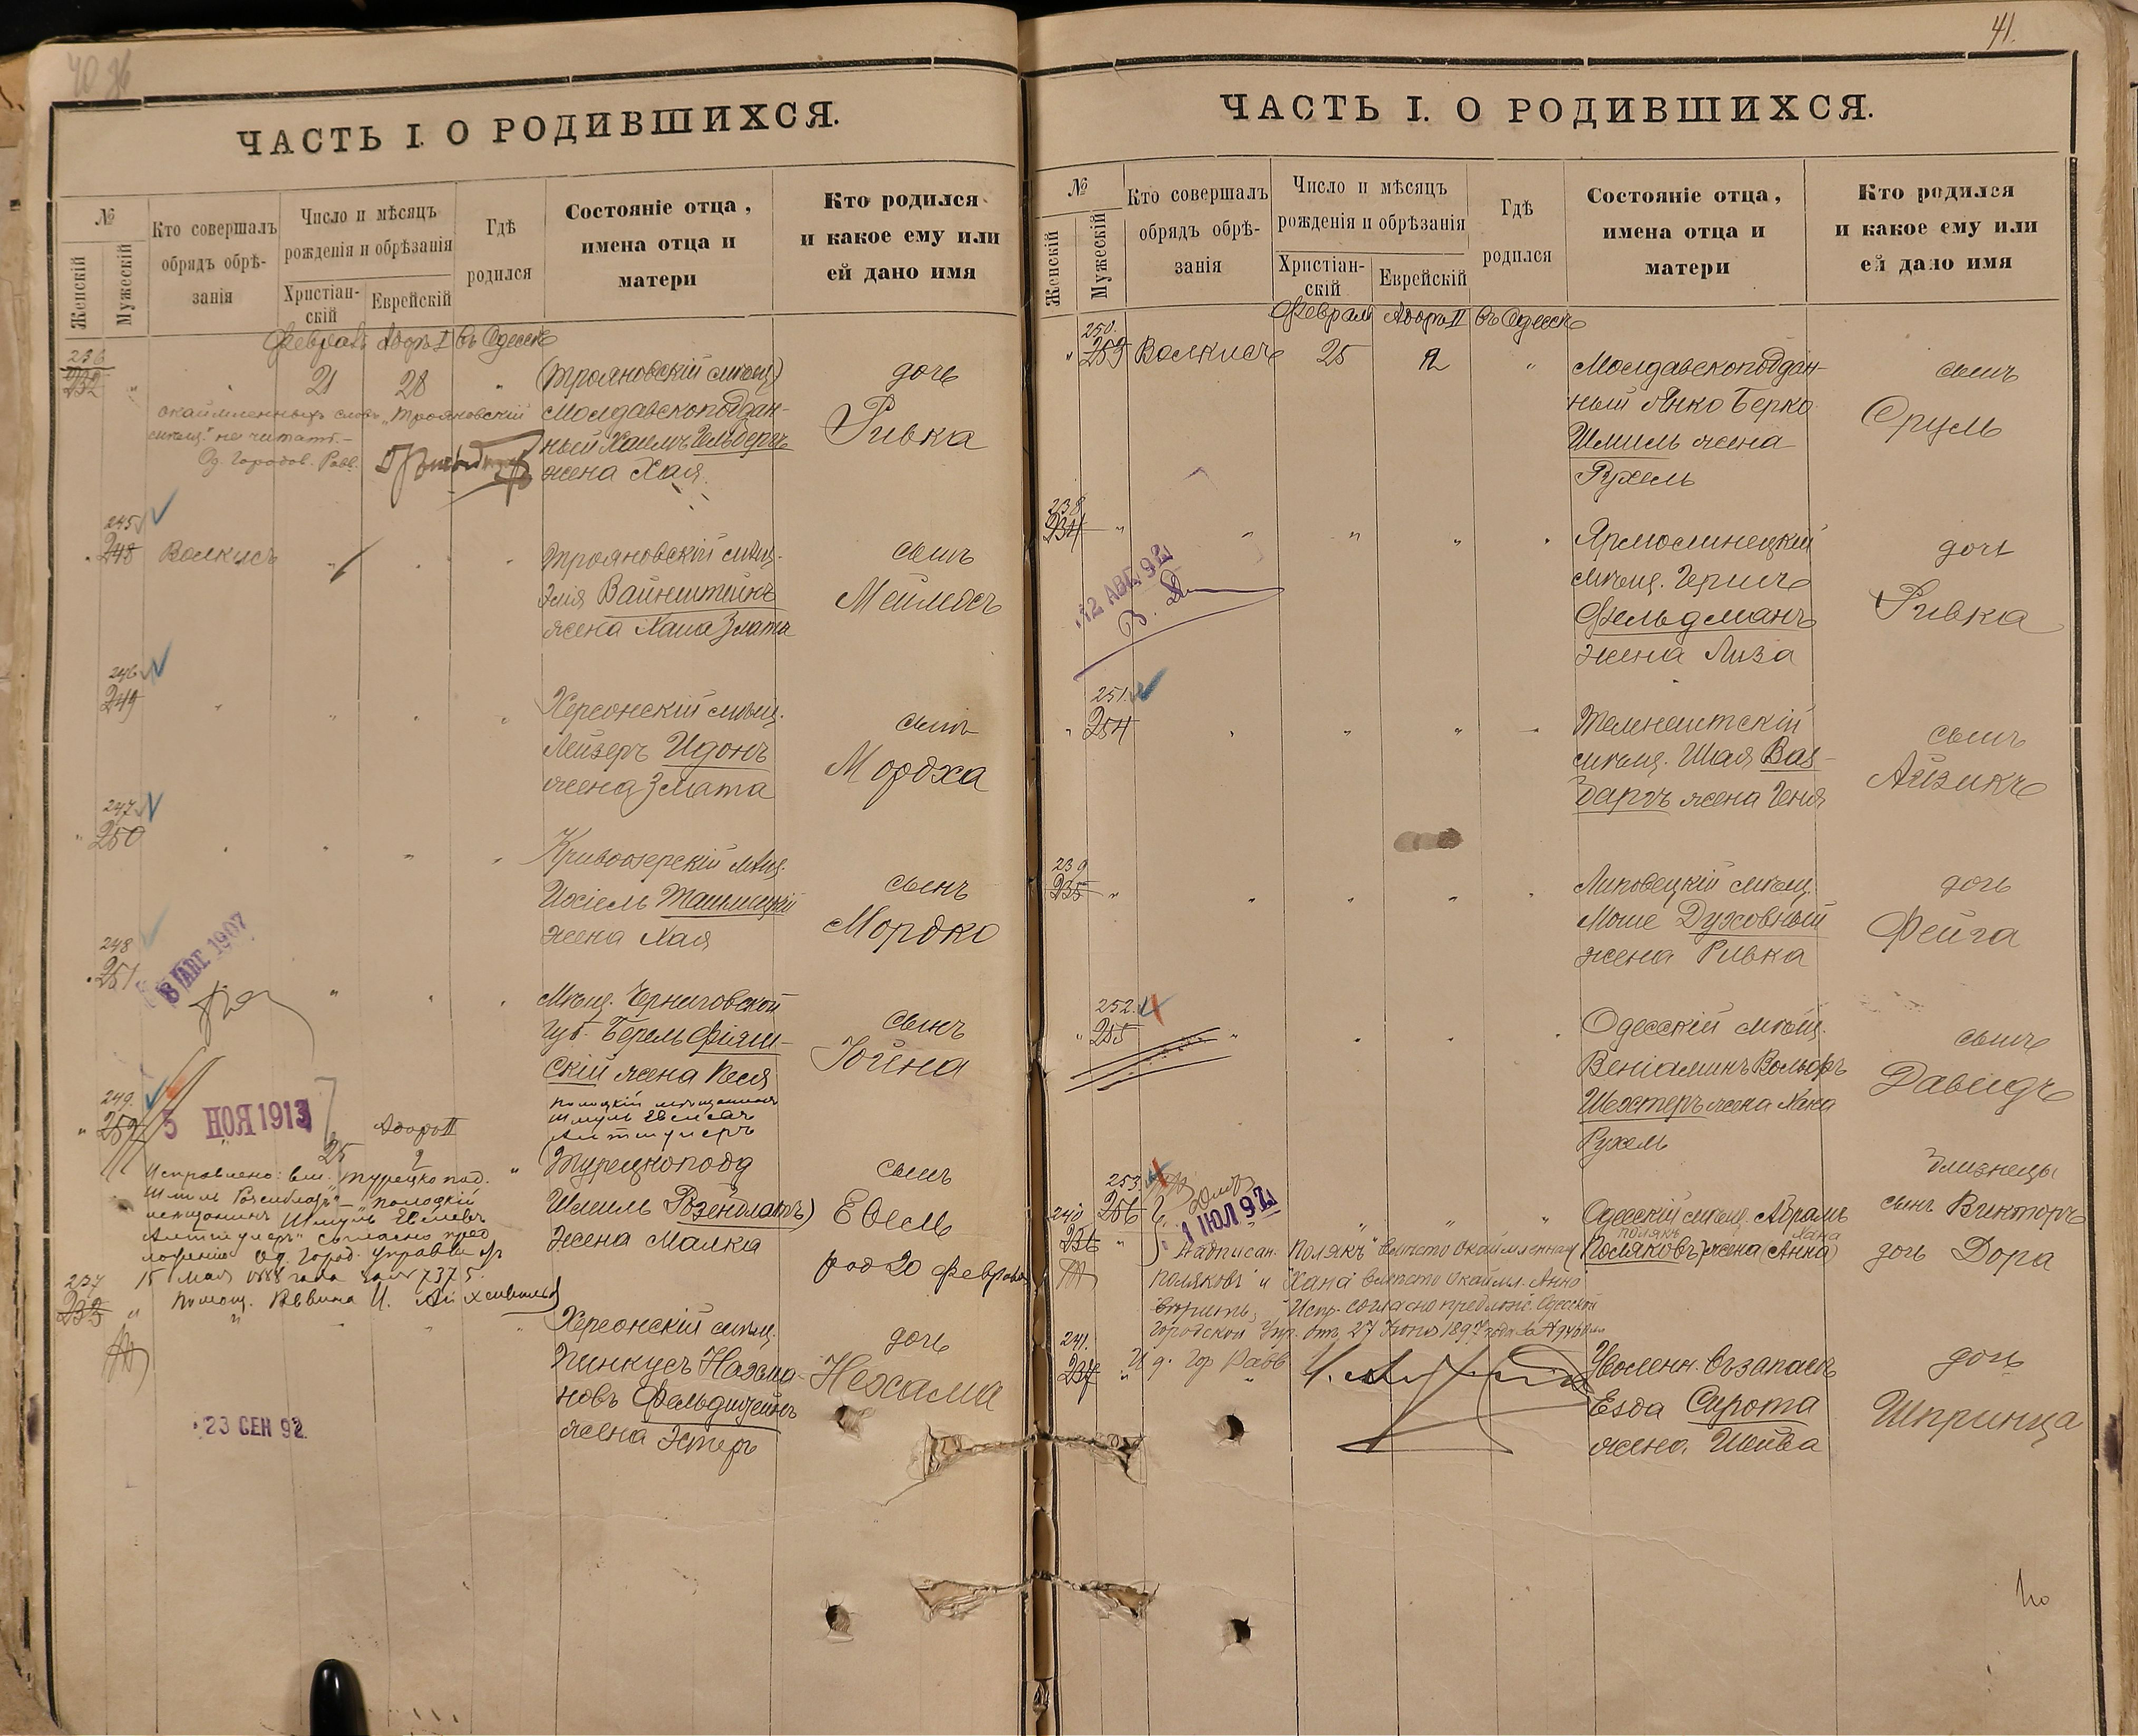 40 об
ЧАСТЬ I. О РОДИВШИХСЯ.
№
Женскій
Мужескій
Кто совершалъ
обрядъ обрѣ-
занія
Число и мѣсяцъ
рожденія и обрѣзанія
Христіан-
скій
Еврейскій
Гдѣ
родился
Состояніе отца,
имена отца и
матери
Кто родился
и какое ему или
ей дано имя
Февраль Адоръ I въ Одессѣ
236
232 " " 21 28 "
(Трояновскій мѣщ)
Молдавскоподдан-
ный Хаимъ Гельбергъ
жена Хая
дочь
Ривка
окаймленныхъ словъ "Трояновскій
мѣщ." не читать.-
Од. Городов. Равв.
245
248 Волкисъ
Трояновскій мѣщ.
Эля Вайнштейнъ
жена Хана Злата
сынъ
Меймосъ
246
249
Херсонскій мѣщ.
Лейзеръ Идонъ
жена Злата
сынъ
Мордха
247
250
Кривоозерскій мѣщ.
Ихіель Ташлицкій
жена Хая
сынъ
Мордко
248
251
8 АВГ 1907
Мѣщ. Черниговской
губ. Берель Фіяш-
скій жена Песя
сынъ
Іойна
249.
252
5 НОЯ 1913
25 Адоръ II 2
Полоцкій мѣщанинъ
Шмуль Евелевъ
Альтшулеръ
(Турецкопод
Шмиль Розенблатъ)
жена Малка
сынъ
Евель
род 20 февраля
Исправлено: вм. "Турецко под.
Шмиль Розенблатъ" - "полоцкій
мѣщанинъ Шмуль Евелевъ
Альтшулеръ" согласно пред
ложенію Од. Город. Управы от
15 Мая 1888 года за № 7375.
Помощ. Раввина И.
237
233 "
Херсонскій мѣщ.
Пинкусъ Нахма-
новъ Фельдштейнъ
жена Эстеръ
дочь
Нехама
23 СЕН 92
41.
ЧАСТЬ I. О РОДИВШИХСЯ.
№
Женскій
Мужескій
Кто совершалъ
обрядъ обрѣ-
занія
Число и мѣсяцъ
рожденія и обрѣзанія
Христіан-
скій
Еврейскій
Гдѣ
родился
Состояніе отца,
имена отца и
матери
Кто родился
и какое ему или
ей дано имя
Февраль Адоръ II въ Одессѣ
250.
" 253 Волкисъ 25 2 "
Молдавскоподдан-
ный Янко Берко
Шмиль жена
Рухель
сынъ
Срулъ
238
234 "
12 АВГ 92
Ярмолинецкій
мѣщ. Гершъ
Фельдманъ
жена Лиза
дочь
Ривка
251.
254
Теленештскій
мѣщ. Шая Ваз-
даргъ жена Геня
сынъ
Айзикъ
239
235 "
Липовецкій мѣщ.
Моше Духовный
жена Ривка
дочь
Фейга
252.
255
Одесскій мѣщ.
Веніаминъ Вольфъ
Шехтеръ жена Хана
Рухель
сынъ
Давидъ
253.
256
240
236
1 ІЮЛ 97
Одесскій мѣщ. Абрамъ
Полякъ Хана
(Поляковъ) жена (Анна)
близнецы
сынъ Викторъ
дочь Дора
Надписан. "Полякъ" вмѣсто окаймленнаго
Поляковъ и "Хана" вмѣсто окаймл. Анна
вѣрить, Испр. согласно предлож. Одесской
Городской Упр. отъ 27 Іюня 1897 года за №
И д. Гор Равв
241.
237
Уволенн. въ запасъ
Езда Сирота
жена Шейва
дочь
Шпринца